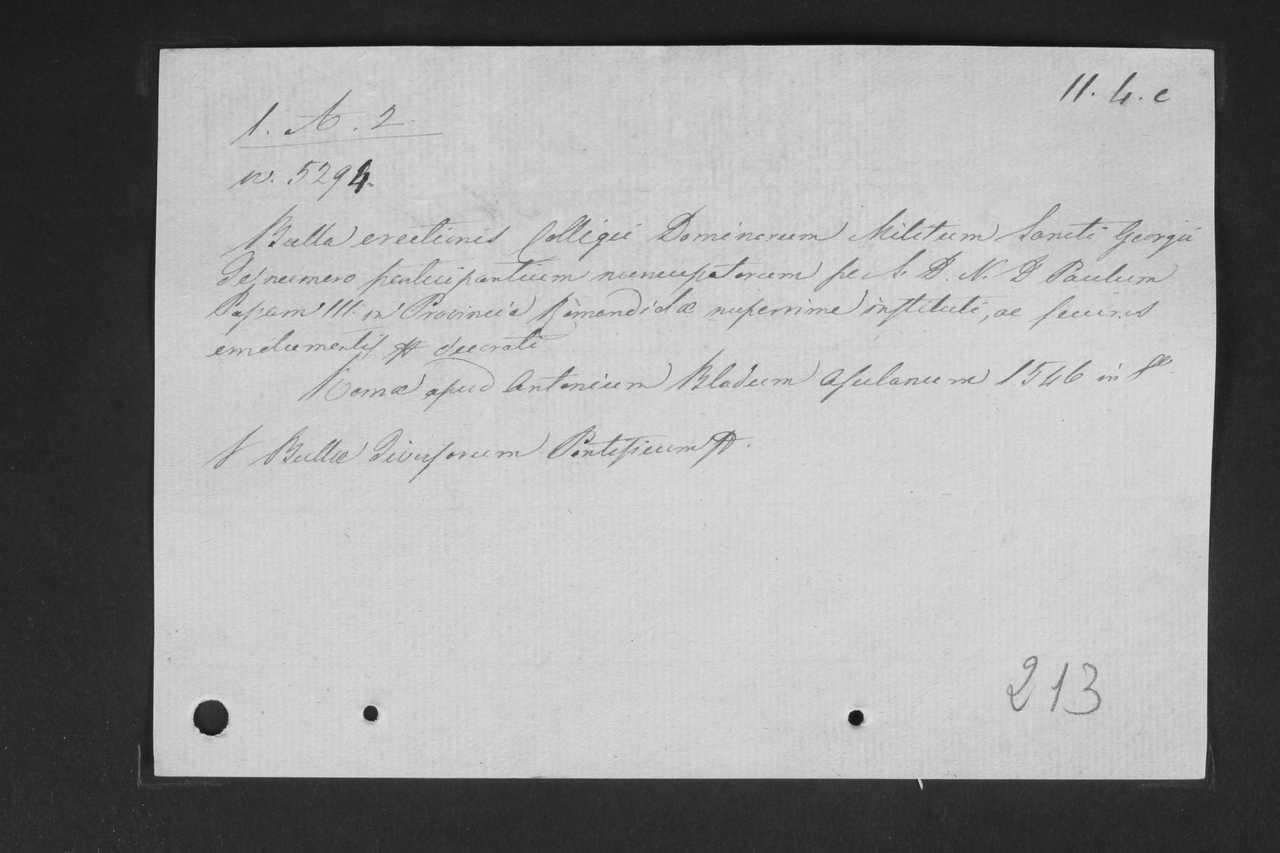 11. 4. c
1. A. 2
n. 5294.
Bulla erectionis Collegii Dominorum Militum Sancti Georgii
de numero participantium nuncupatorum per S. D. N. D Paulum
Papam III. in Provincia Romandiolæ nuperrime instituti, ac
emolumentis decorati
Romæ apud Antonium Bladum Asulanum 1546 in 8º.
V Bullæ Diversorum Pontificum
213